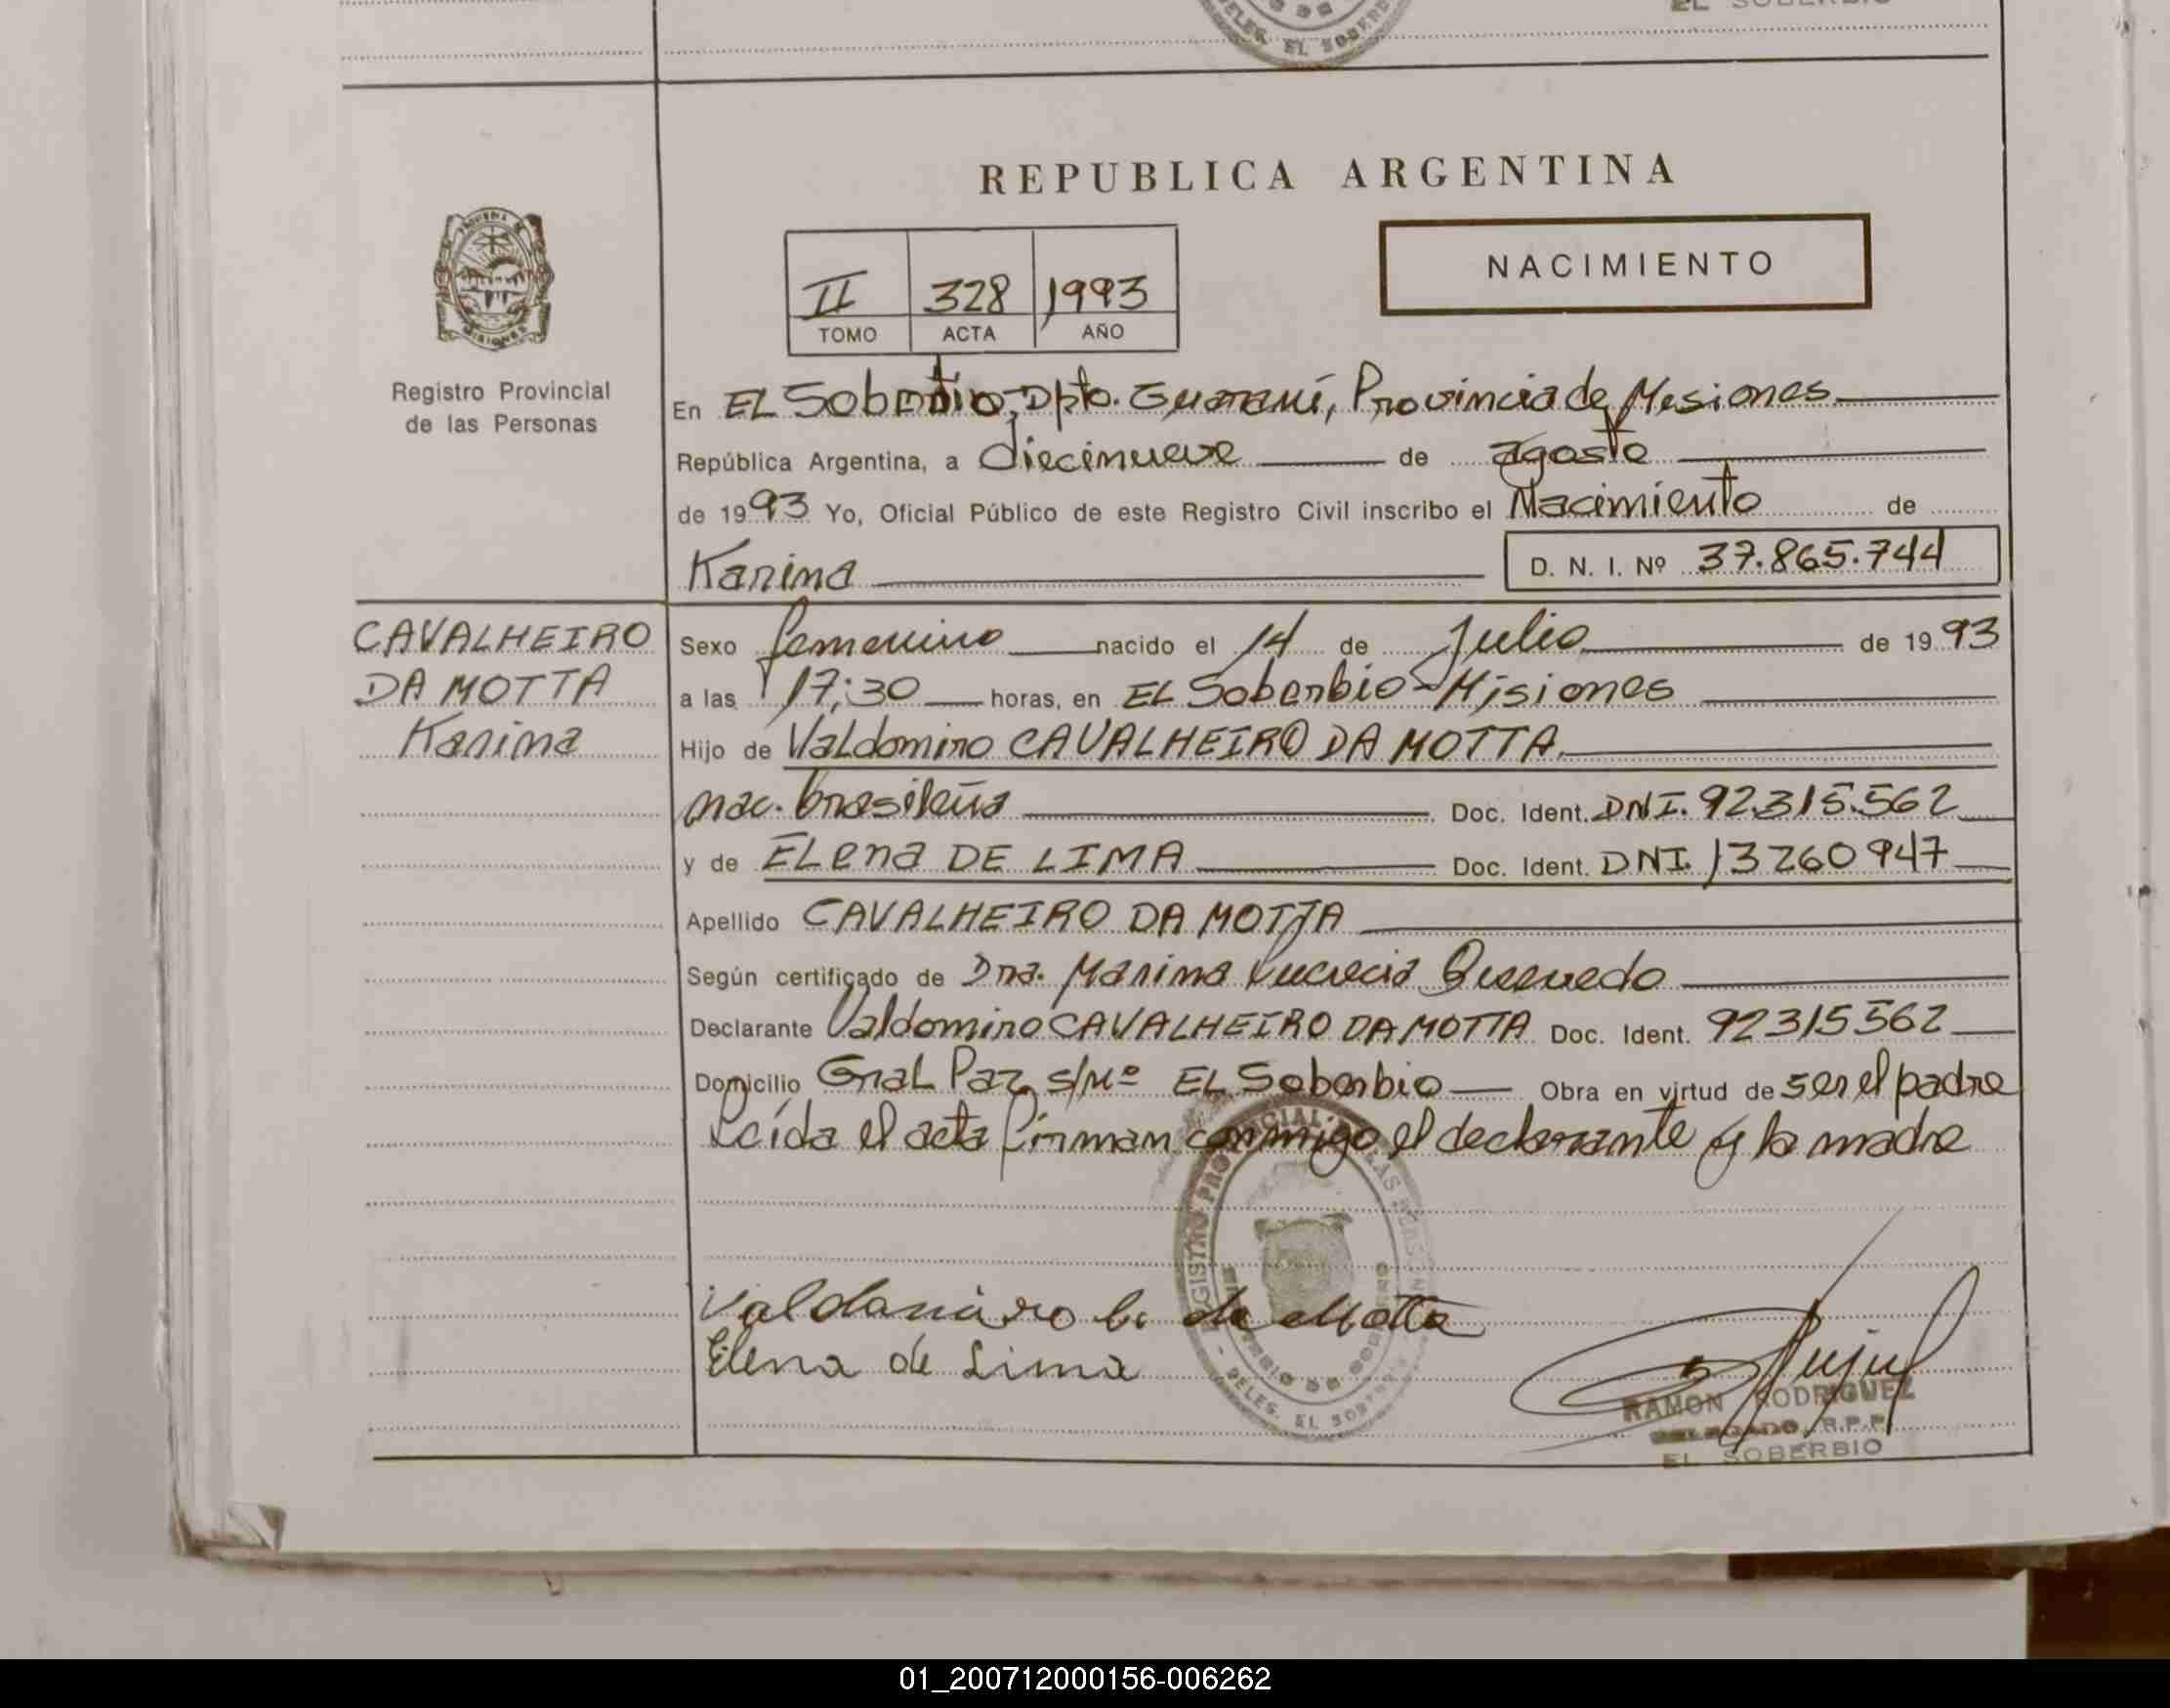 DELEG. EL SOBERBIO
EL SOBERBIO
REPUBLICA ARGENTINA
NACIMIENTO
II 328 1993
TOMO ACTA AÑO
MISIONES
Registro Provincial
de las Personas
En EL Soberbio, Dpto. Guaraní, Provincia de Misiones
República Argentina, a diecinueve de agosto
de 1993 Yo, Oficial Público de este Registro Civil inscribo el Nacimiento de
Karina D. N. I. Nº 37.865.744
CAVALHEIRO
DA MOTTA
Karina
Sexo femenino nacido el 14 de Julio de 1993
a las 17:30 horas, en EL Soberbio-Misiones
Hijo de Valdomiro CAVALHEIRO DA MOTTA
nac. brasileña Doc. Ident. DNI. 92.315.562
y de ELena DE LIMA Doc. Ident. DNI. 13260947
Apellido CAVALHEIRO DA MOTTA
Según certificado de Dra. Marina Lucrecia Quevedo
Declarante Valdomiro CAVALHEIRO DA MOTTA Doc. Ident. 92315562
Domicilio GraL Paz s/Nº EL Soberbio Obra en virtud de ser el padre
Leída el acta firman conmigo el declarante y la madre
REGISTRO PROVINCIAL DE LAS PERSONAS
MINISTERIO DE GOBIERNO
- DELEG. EL SOBERBIO
Valdomiro C. da Motta
Elena de Lima
RAMON RODRIGUEZ
DELEGADO R.P.P.
EL SOBERBIO
01_200712000156-006262